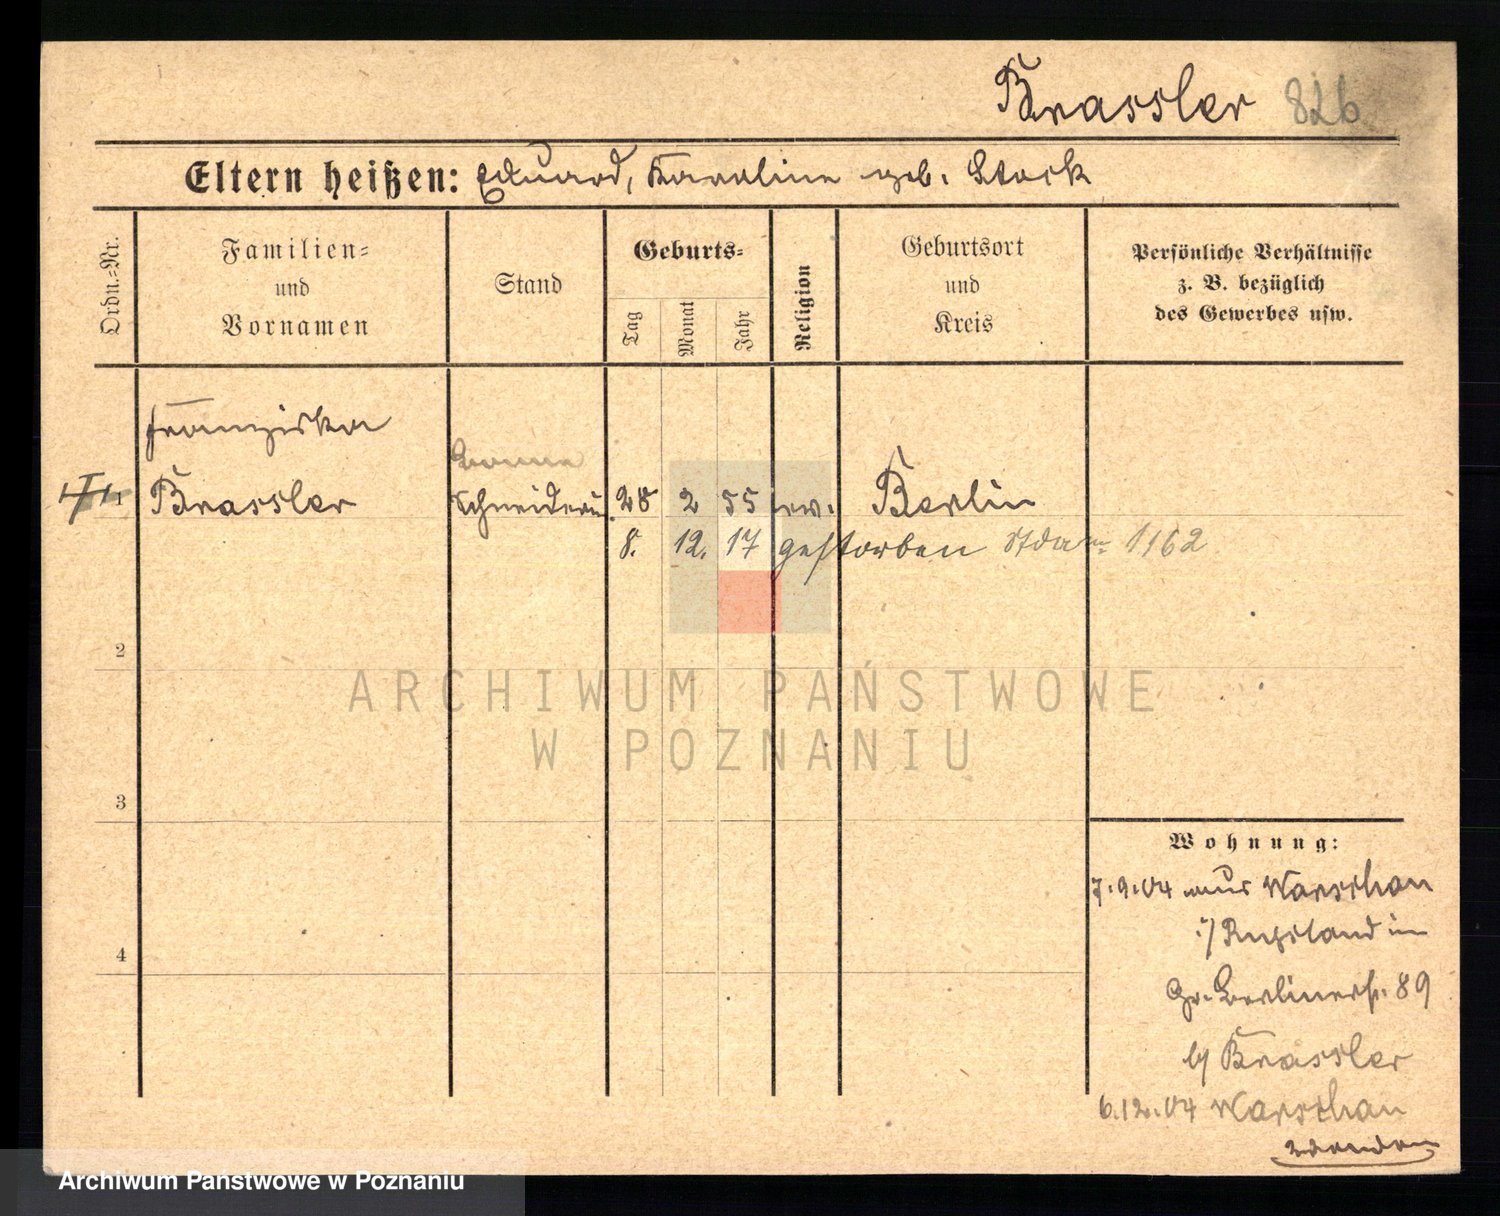 Brassler 826
Eltern heißen: Eduard, Karoline geb. Stock
Ordn.-Nr.
Familien-
und
Vornamen
Stand
Geburts-
Tag
Monat
Jahr
Religion
Geburtsort
und
Kreis
Persönliche Verhältnisse
z. B. bezüglich
des Gewerbes usw.
Franziska
Bonne
1 Brassler Schneiderin 28 2 55 ew. Berlin
8. 12. 17 gestorben 1162
2
ARCHIWUM PAŃSTWOWE
W POZNANIU
3
Wohnung:
7.9.04 aus Warschau
i/ Russland in
4
Gr. Berlinerstr. 89
b/ Brassler
6.12.04 Warschau
Archiwum Państwowe w Poznaniu